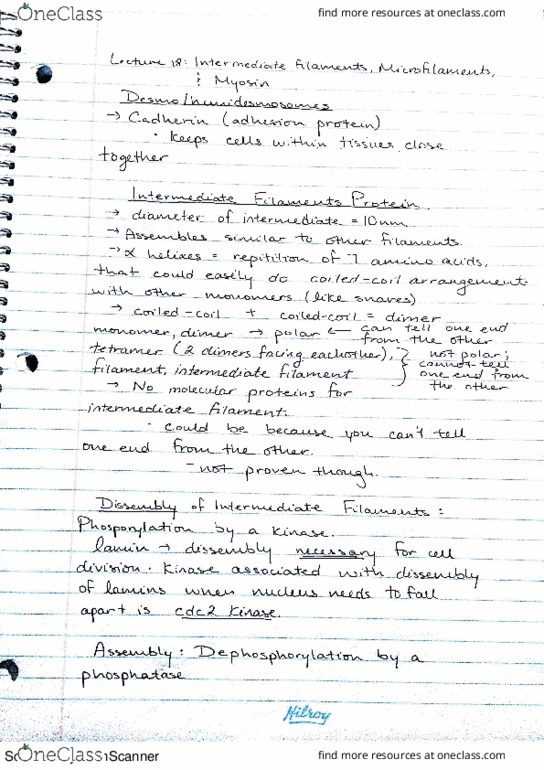 OneClass
find more resources at oneclass.com
Lecture 18: Intermediate Filaments, Microfilaments,
: Myosin
Desmo/hemidesmosomes
→ Cadherin (adhesion protein)
· Keeps cells within tissues close
together
Intermediate Filaments Protein
→ diameter of intermediate = 10nm
→ Assembles similar to other filaments.
→ α helixes = repitition of 7 amino acids,
that could easily do coiled-coil arrangement
with other monomers (like snares)
→ coiled-coil + coiled-coil = dimer
monomer, dimer → polar ← can tell one end
from the other
tetramer (2 dimers facing eachother), } not polar;
filament, intermediate filament } cannot tell
one end from
the other
→ No molecular proteins for
intermediate filament:
· could be because you can't tell
one end from the other.
- not proven though.
Dissembly of Intermediate Filaments:
Phosporylation by a kinase.
lamin → dissembly necessary for cell
division. Kinase associated with dissembly
of lamins when nucleus needs to fall
apart is cdc2 kinase.
Assembly: Dephosphorylation by a
phosphatase
Hilroy
OneClass
Scanner
find more resources at oneclass.com